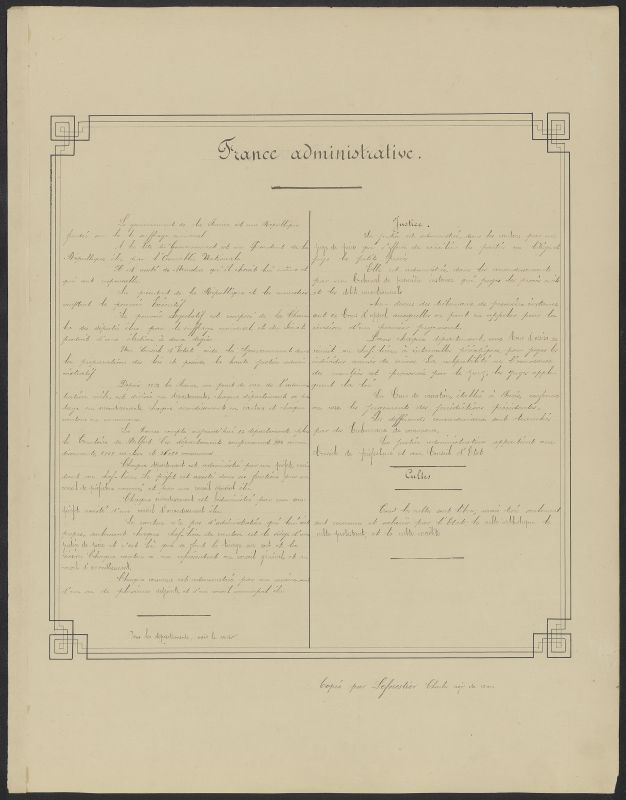 France administrative.
Le gouvernement de la France est une République
fondée sur le suffrage universel
A la tête du Gouvernement est un Président de la
République élu par l'Assemblée Nationale
Il est assisté de Ministres qu'il choisit lui même et
qui sont responsables.
Le président de la République et les ministres
exercent le pouvoir Exécutif
Le pouvoir Législatif est composé de la Cham
bre des députés élus par le suffrage universel et du Sénat
produit d'une élection à deux degrés
Un Conseil d'Etat aide le Gouvernement dans
la préparation des lois et possède la haute justice admi-
nistrative
Depuis la France au point de vue de l'adminis
tration civile est divisée en départements, chaque département
chaque arrondissement en cantons et chaque
canton en communes
La France compte aujourd'hui 86 départements plus
le Territoire de Belfort. Ces départements comprennent arron
dissements, cantons et communes
Chaque département est administré par un préfet
dont un chef-lieu. Le préfet est assisté dans ses fonctions par un
conseil de préfecture nommé et par un conseil général élu
Chaque arrondissement est administré par un sous-
préfet assisté d'un conseil d'arrondissement élu
Le canton n'a pas d'administration qui lui soit
propre, seulement chaque chef-lieu de canton est le siège d'une
justice de paix et c'est là que se fait le tirage au sort et la
révision. Chaque canton a un représentant au conseil général et au
conseil d'arrondissement.
Chaque commune est administrée par un maire
d'un ou de plusieurs adjoints et d'un conseil municipal élu
Pour les départements, voir le verso
Justice.
La justice est administrée dans les cantons par un
juge de paix qui s'efforce de concilier les parties
juge les petits procès
Elle est administrée dans les arrondissements
par un tribunal de première instance qui juge les procès civils
et les délits correctionnels
Au dessus des tribunaux de première instance
sont les Cours d'appel auxquelles on peut en appeler pour la
révision d'un premier jugement.
Dans chaque département, une Cour d'assises se
réunit au chef-lieu, à intervalle périodique, pour juger les
individus accusés de crime. La culpabilité ou l'innocence
des accusés est prononcée par le jury, les juges appli-
quent la loi
La Cour de cassation, établie à Paris, confirme
ou casse les jugements des juridictions précédentes.
Les différends commerciaux sont tranchés
par des Tribunaux de commerce.
La justice administrative appartient aux
Conseils de préfecture et au Conseil d'Etat
Cultes
Tous les cultes sont libres, mais trois seulement
sont reconnus et salariés par l'Etat: le culte catholique, le
culte protestant, et le culte israélite
Copié par Leforestier Charles